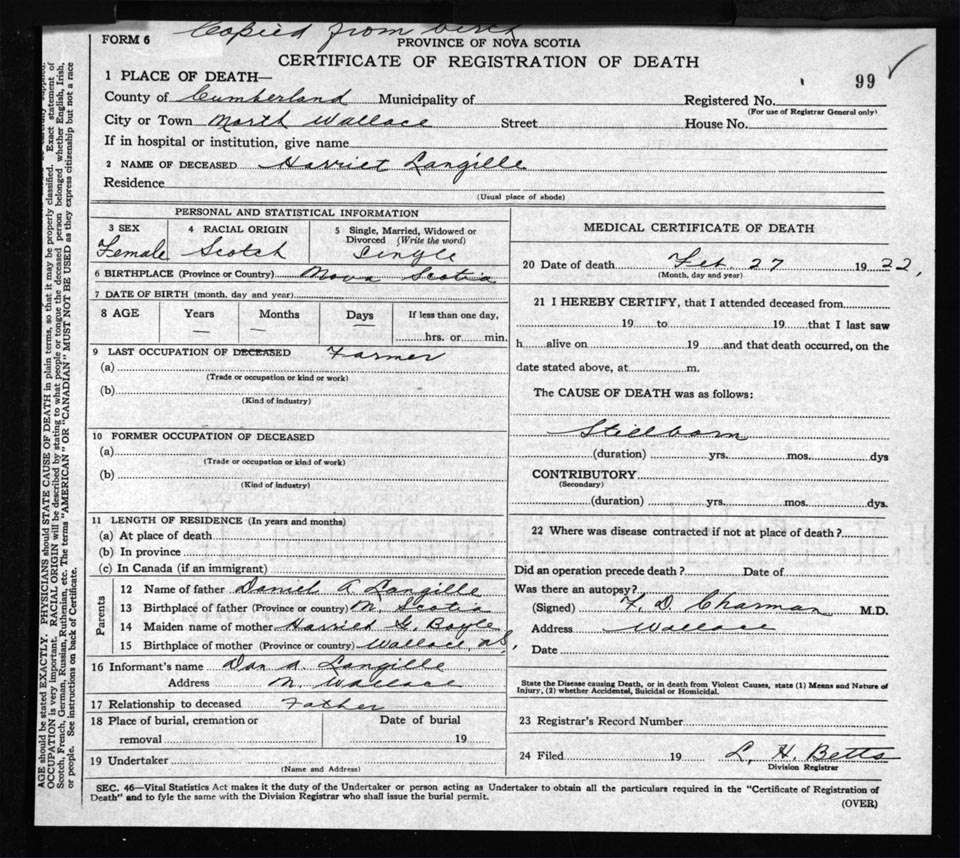 Copied from birth
FORM 6
PROVINCE OF NOVA SCOTIA
CERTIFICATE OF REGISTRATION OF DEATH
99
1 PLACE OF DEATH—
County of Cumberland Municipality of Registered No.
(For use of Registrar General only)
City or Town North Wallace Street House No.
If in hospital or institution, give name
2 NAME OF DECEASED Harriet Langille
Residence
(Usual place of abode)
PERSONAL AND STATISTICAL INFORMATION
3 SEX 4 RACIAL ORIGIN 5 Single, Married, Widowed or
Divorced (Write the word)
Female Scotch Single
6 BIRTHPLACE (Province or Country) Nova Scotia
7 DATE OF BIRTH (month, day and year)
8 AGE Years Months Days If less than one day,
— — — hrs. or min.
9 LAST OCCUPATION OF DECEASED Farmer
(a)
(Trade or occupation or kind or work)
(b)
(Kind of industry)
10 FORMER OCCUPATION OF DECEASED
(a)
(Trade or occupation or kind of work)
(b)
(Kind of industry)
11 LENGTH OF RESIDENCE (In years and months)
(a) At place of death
(b) In province
(c) In Canada (if an immigrant)
Parents
12 Name of father Daniel A Langille
13 Birthplace of father (Province or country) N. Scotia
14 Maiden name of mother Harriet G. Boyle
15 Birthplace of mother (Province or country) Wallace, N.S.
16 Informant's name Dan A. Langille
Address N. Wallace
17 Relationship to deceased Father
18 Place of burial, cremation or Date of burial
removal 19
19 Undertaker
(Name and Address)
MEDICAL CERTIFICATE OF DEATH
20 Date of death Feb. 27 1922,
(Month, day and year)
21 I HEREBY CERTIFY, that I attended deceased from
19 to 19 that I last saw
h alive on 19 and that death occurred, on the
date stated above, at m.
The CAUSE OF DEATH was as follows:
Stillborn
(duration) yrs. mos. dys
CONTRIBUTORY
(Secondary)
(duration) yrs. mos. dys.
22 Where was disease contracted if not at place of death?
Did an operation precede death? Date of
Was there an autopsy?
(Signed) F. D. Charman M.D.
Address Wallace
Date
State the Disease causing Death, or in death from Violent Causes, state (1) Means and Nature of
Injury, (2) whether Accidental, Suicidal or Homicidal.
23 Registrar's Record Number
24 Filed 19 L. H. Betts
Division Registrar
SEC. 46—Vital Statistics Act makes it the duty of the Undertaker or person acting as Undertaker to obtain all the particulars required in the "Certificate of Registration of
Death" and to fyle the same with the Division Registrar who shall issue the burial permit.
(OVER)
AGE should be stated EXACTLY. PHYSICIANS should STATE CAUSE OF DEATH in plain terms, so that it may be properly classified. Exact statement of
OCCUPATION is very important. RACIAL ORIGIN will be described by stating to what people or tongue the deceased person belonged whether English, Irish,
Scotch, French, German, Russian, Ruthenian, etc. The terms "AMERICAN" OR "CANADIAN" MUST NOT BE USED as they express citizenship but not a race
or people. See instructions on back of Certificate.